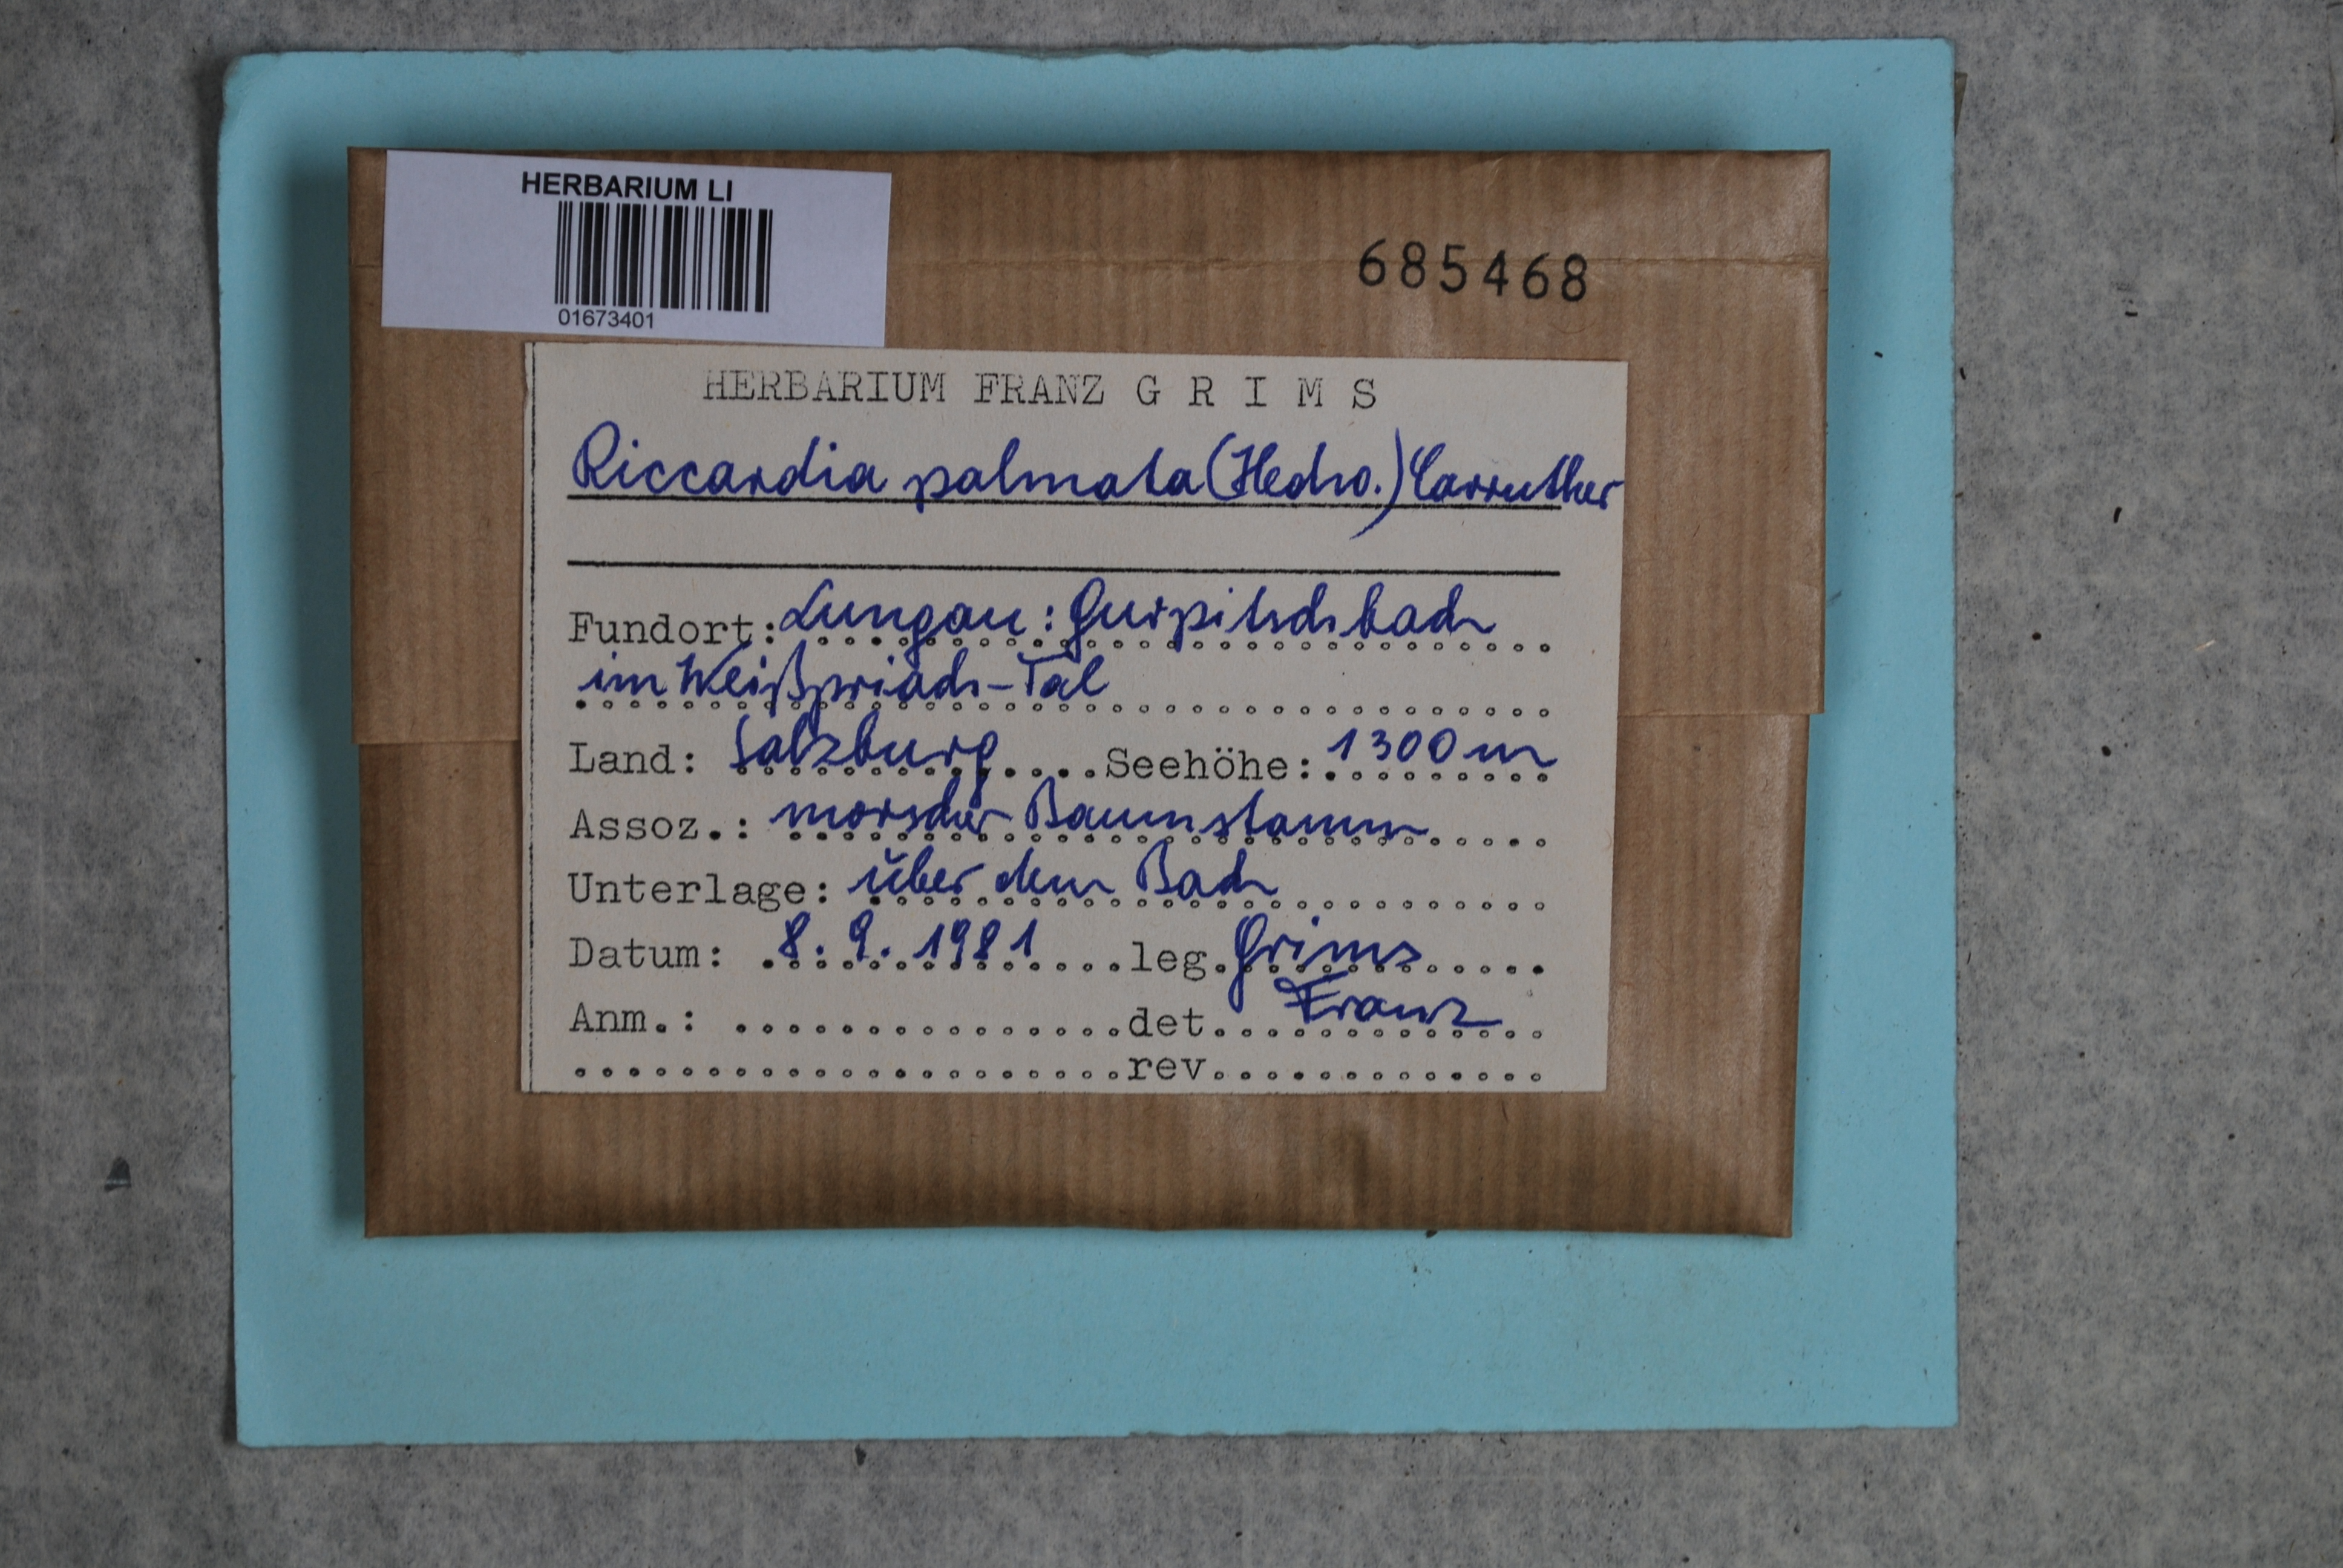 HERBARIUM LI
01673401
685468
HERBARIUM FRANZ G R I M S
Riccardia palmata (Hedw.) Carruther
Fundort: Lungau: Gurpitschbach
im Weißpriach-Tal
Land: Salzburg Seehöhe: 1300 m
Assoz.: morscher Baumstamm
Unterlage: über dem Bach
Datum: 8.9.1981 leg. Grims
Anm.: det. Franz
rev.